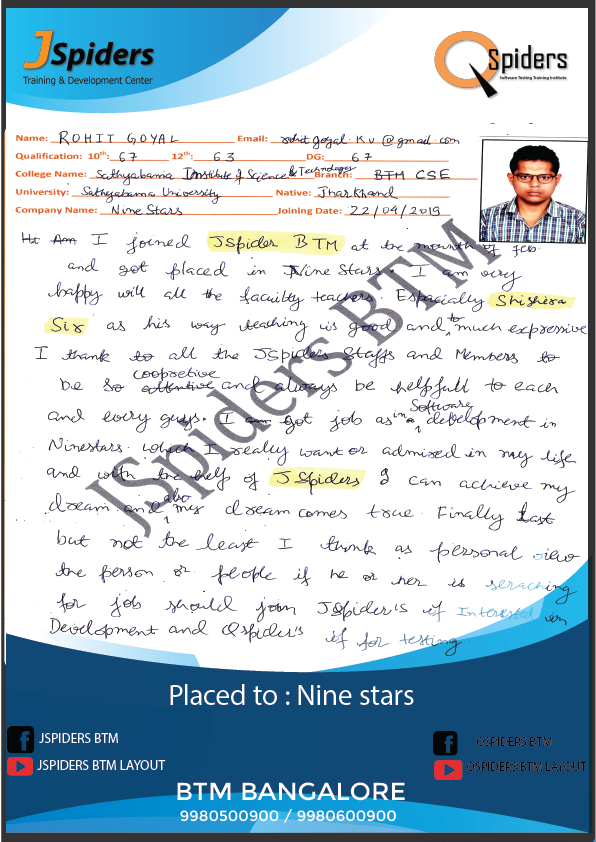 JSpiders
Training & Development Center
QSpiders
Software Testing Training Institute
Name: ROHIT GOYAL Email: rohit goyal. K v @ gmail. com
Qualification: 10th: 67 12th: 63 DG: 67
College Name: Sathyabama Institute of Science & Technology Branch: BTM CSE
University: Sathyabama University Native: Jharkhand
Company Name: Nine Stars Joining Date: 22/04/2019
Hi Am I joined JSpider BTM at the month of feb
and got placed in Nine Stars. I am very
happy will all the faculty teachers. Especially Shishira
Sir as his way teaching is good and to much expressive
I thank to all the JSpiders Staffs and Members to
be so attentive coopretive and always be helpfull to each
and every guys. I am got job as in a Software development in
Ninestars. which I really want or admired in my life
and with the help of JSpiders I can achieve my
dream and also my dream comes true. Finally last
but not the least I think as personal view
the person or people if he or her is seraching
for job should join JSpider's if Interested in
Development and Qspider's if for testing.
JSpiders BTM
Placed to : Nine stars
JSPIDERS BTM
QSPIDERS BTM
JSPIDERS BTM LAYOUT
QSPIDERS BTM LAYOUT
BTM BANGALORE
9980500900 / 9980600900